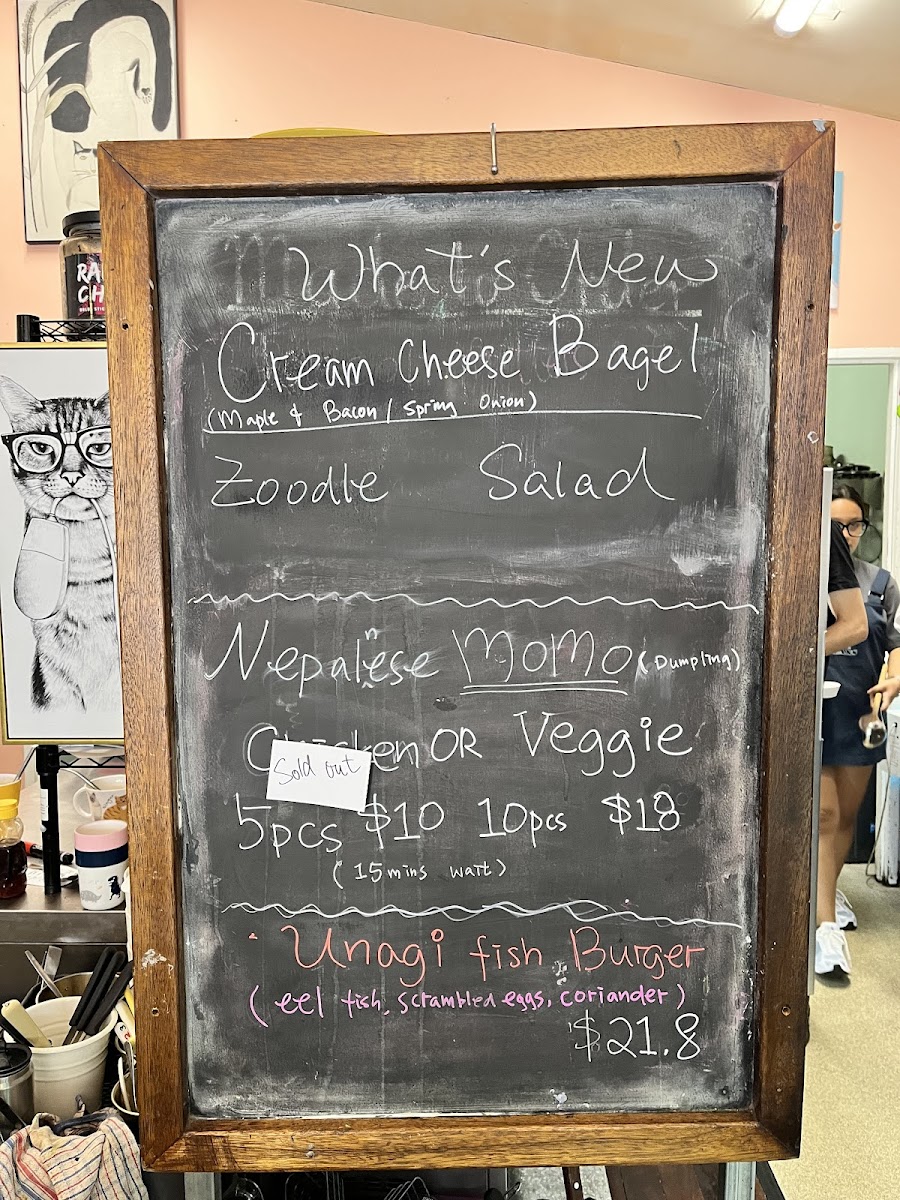 What's New
Cream Cheese Bagel
(Maple & Bacon / Spring Onion)
Zoodle Salad
Nepalese MOMO (Dumpling)
n
Chicken OR Veggie
Sold out
5pcs $10 10pcs $18
(15mins wait)
Unagi fish Burger
(eel fish, scrambled eggs, coriander)
$21.8
RA
CH